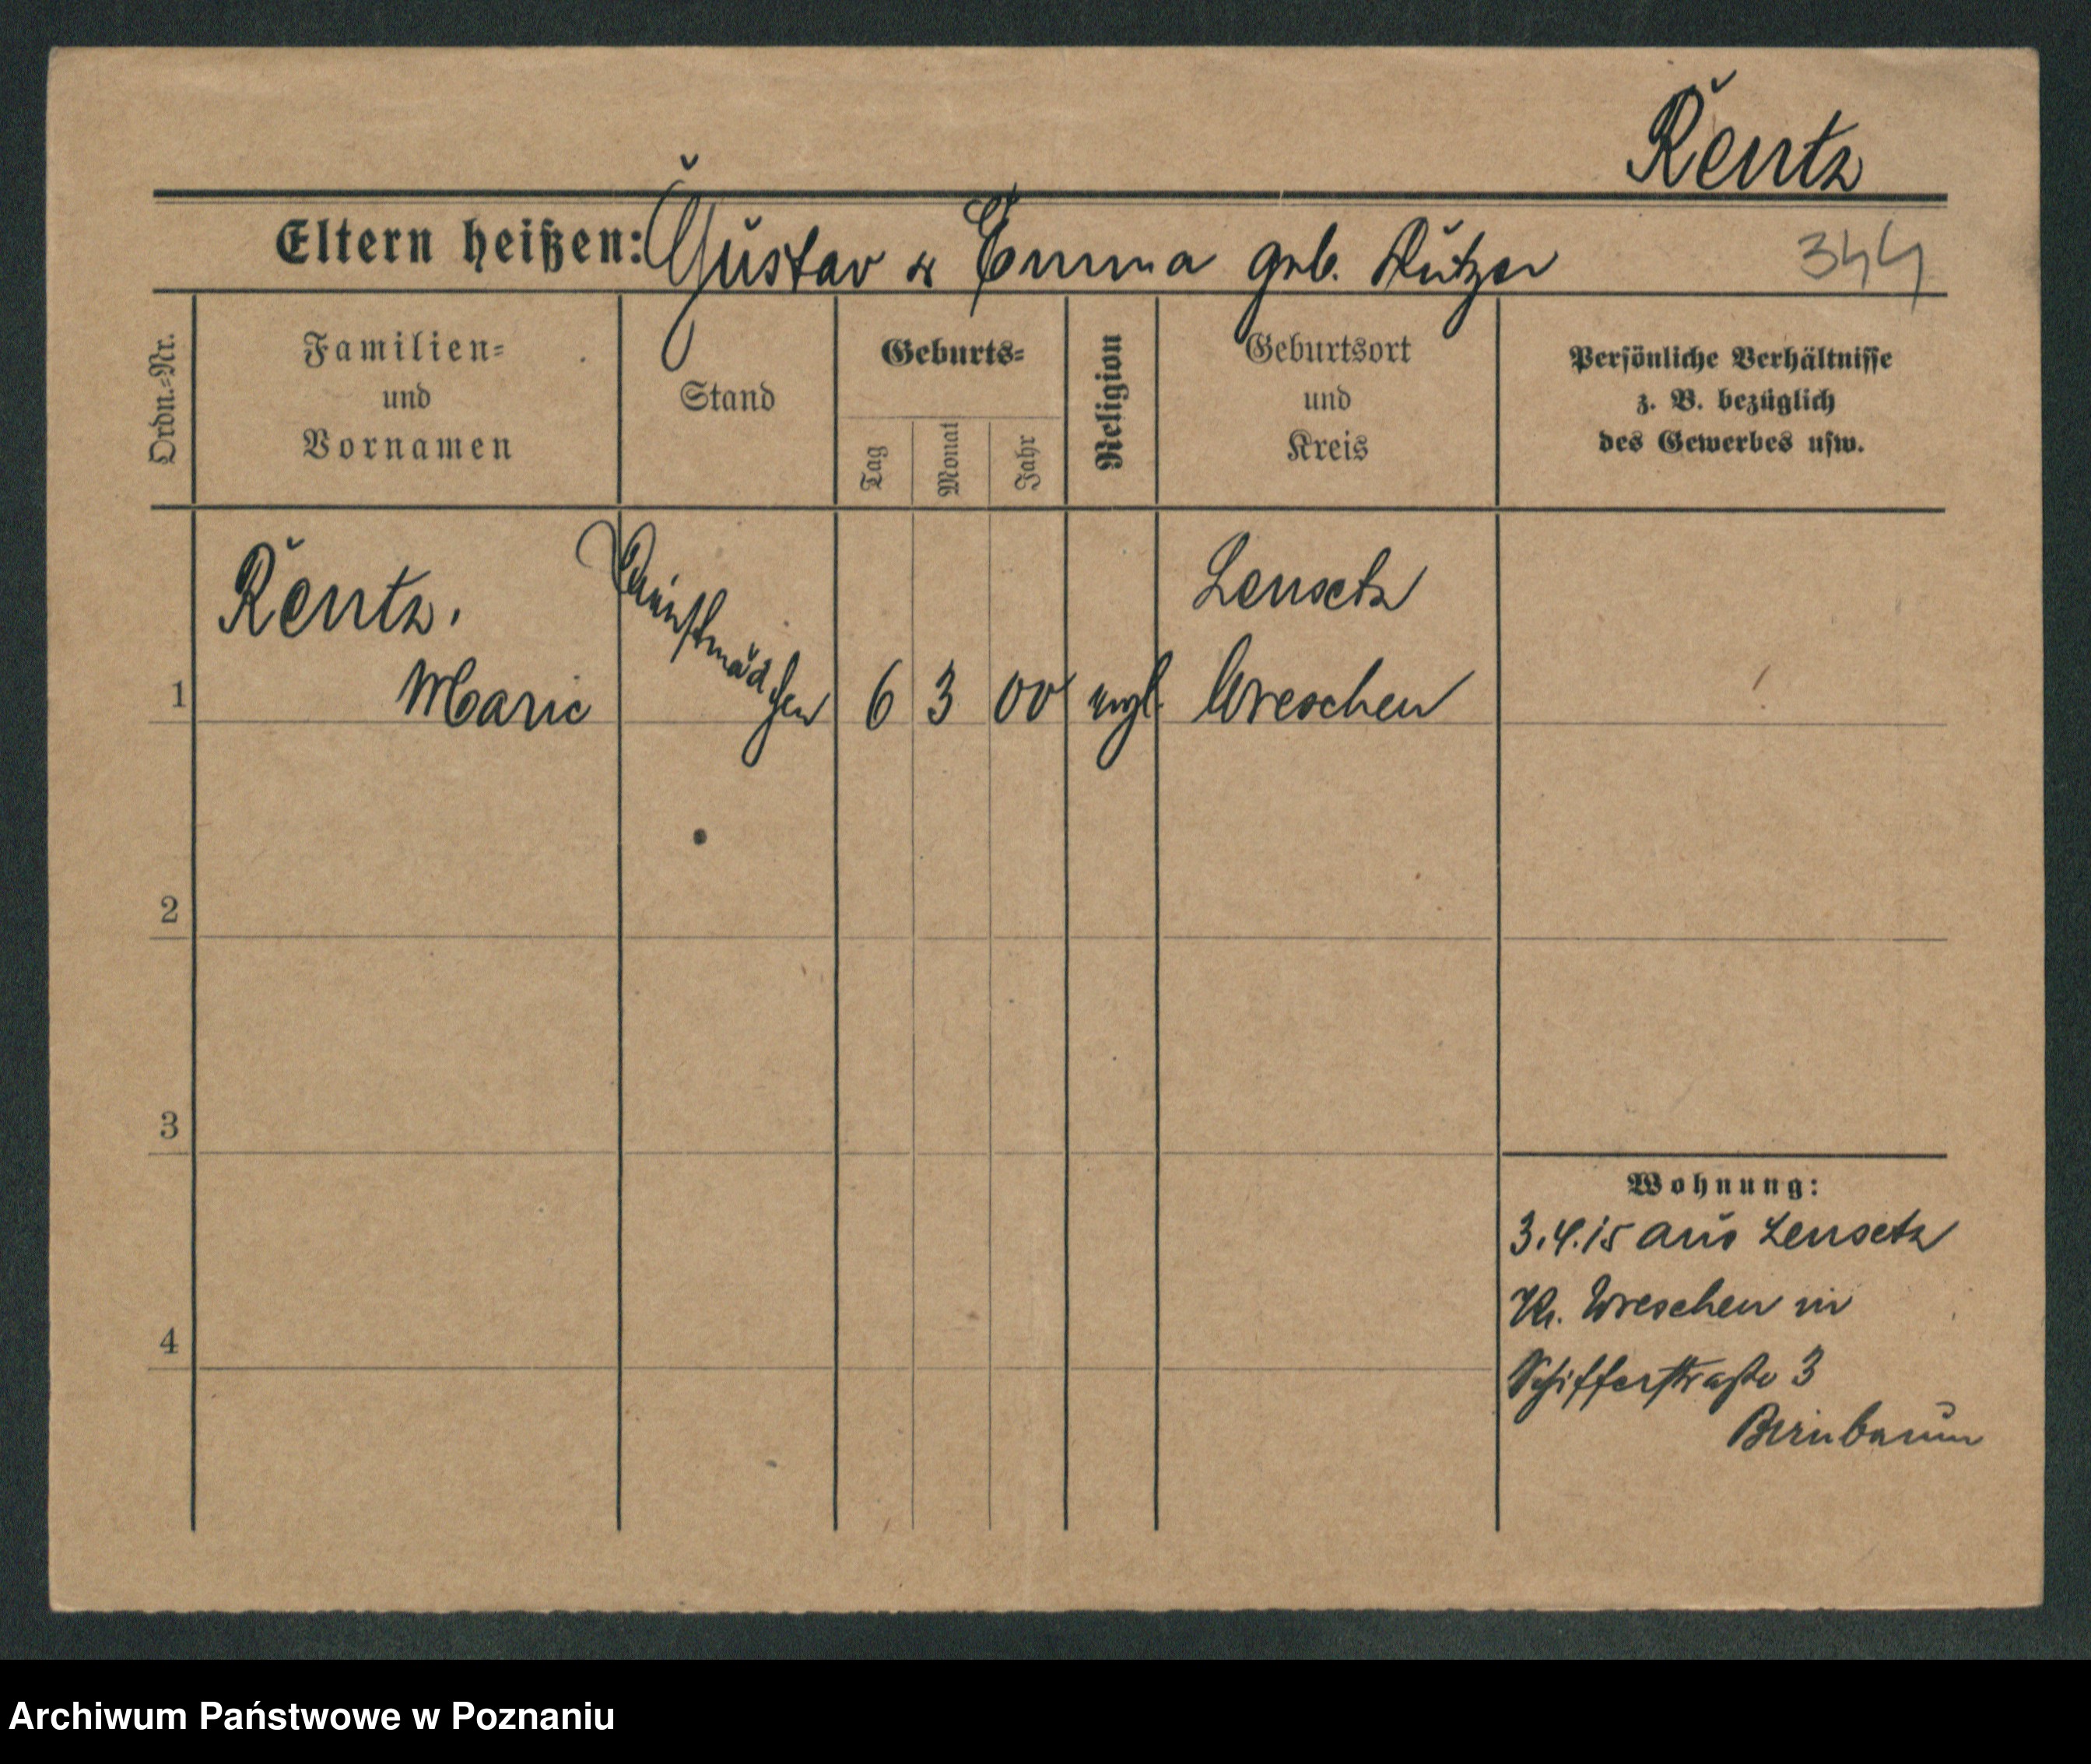 Rentz
Eltern heißen: Gustav & Emma geb.
344
Ordn.-Nr.
Familien-
und
Vornamen
Stand
Geburts-
Tag
Monat
Jahr
Religion
Geburtsort
und
Kreis
Persönliche Verhältnisse
z. B. bezüglich
des Gewerbes usw.
Rentz,
Marie
Dienstmädchen
1
6 3 00
evgl.
Lensetz
Wreschen
2
3
4
Wohnung:
3.4.15 aus Lensetz
Kr. Wreschen in
Schifferstraße 3
Birnbaum
Archiwum Państwowe w Poznaniu